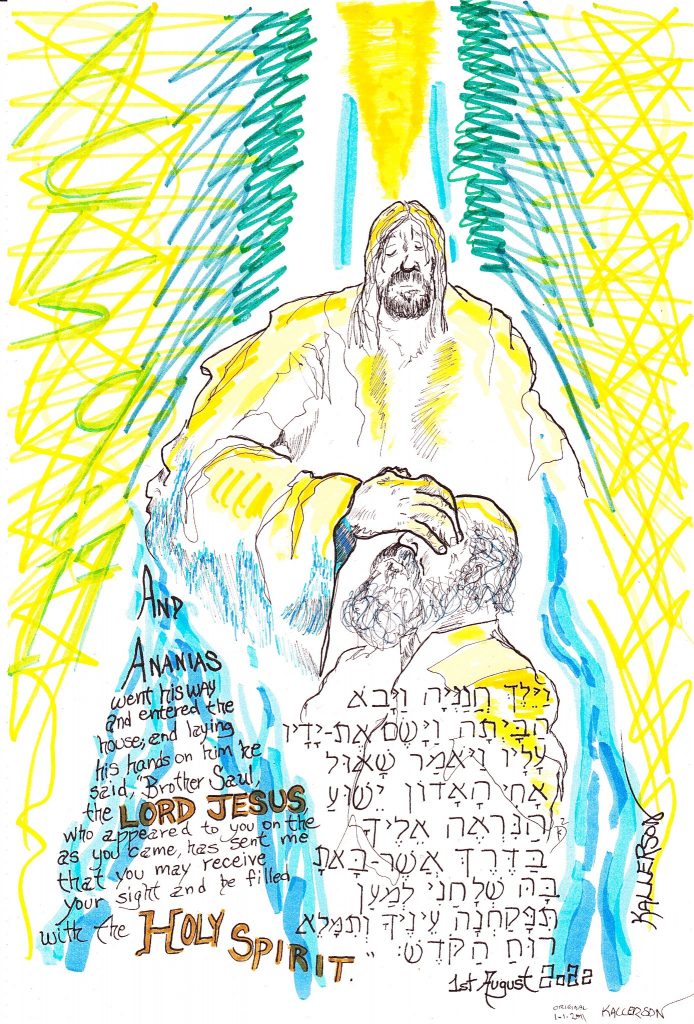 AND
ANANIAS
went his way
and entered the
house; and laying
his hands on him he
said, "Brother Saul,
the LORD JESUS,
who appeared to you on the
as you came, has sent me
that you may receive
your sight and be filled
with the HOLY SPIRIT."
וַיֵּלֶךְ חֲנַנְיָה וַיָּבֹא
הַבַּיְתָה וַיָּשֶׂם אֶת-יָדָיו
עָלָיו וַיֹּאמַר שָׁאוּל
אָחִי הָאָדוֹן יֵשׁוּעַ
הַנִּרְאֶה אֵלֶיךָ
בַּדֶּרֶךְ אֲשֶׁר-בָּאתָ
בָּהּ שְׁלָחַנִי לְמַעַן
תִּפָּקַחְנָה עֵינֶיךָ וְתִמָּלֵא
רוּחַ הַקֹּדֶשׁ:
1st August 2022
KALLERSON
ORIGINAL
KALLERSON